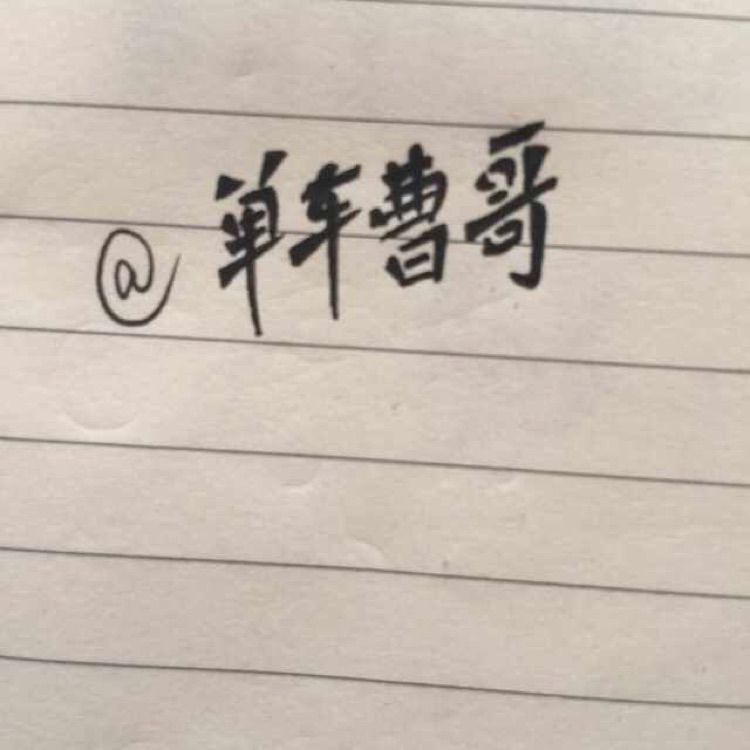 @单车曹哥